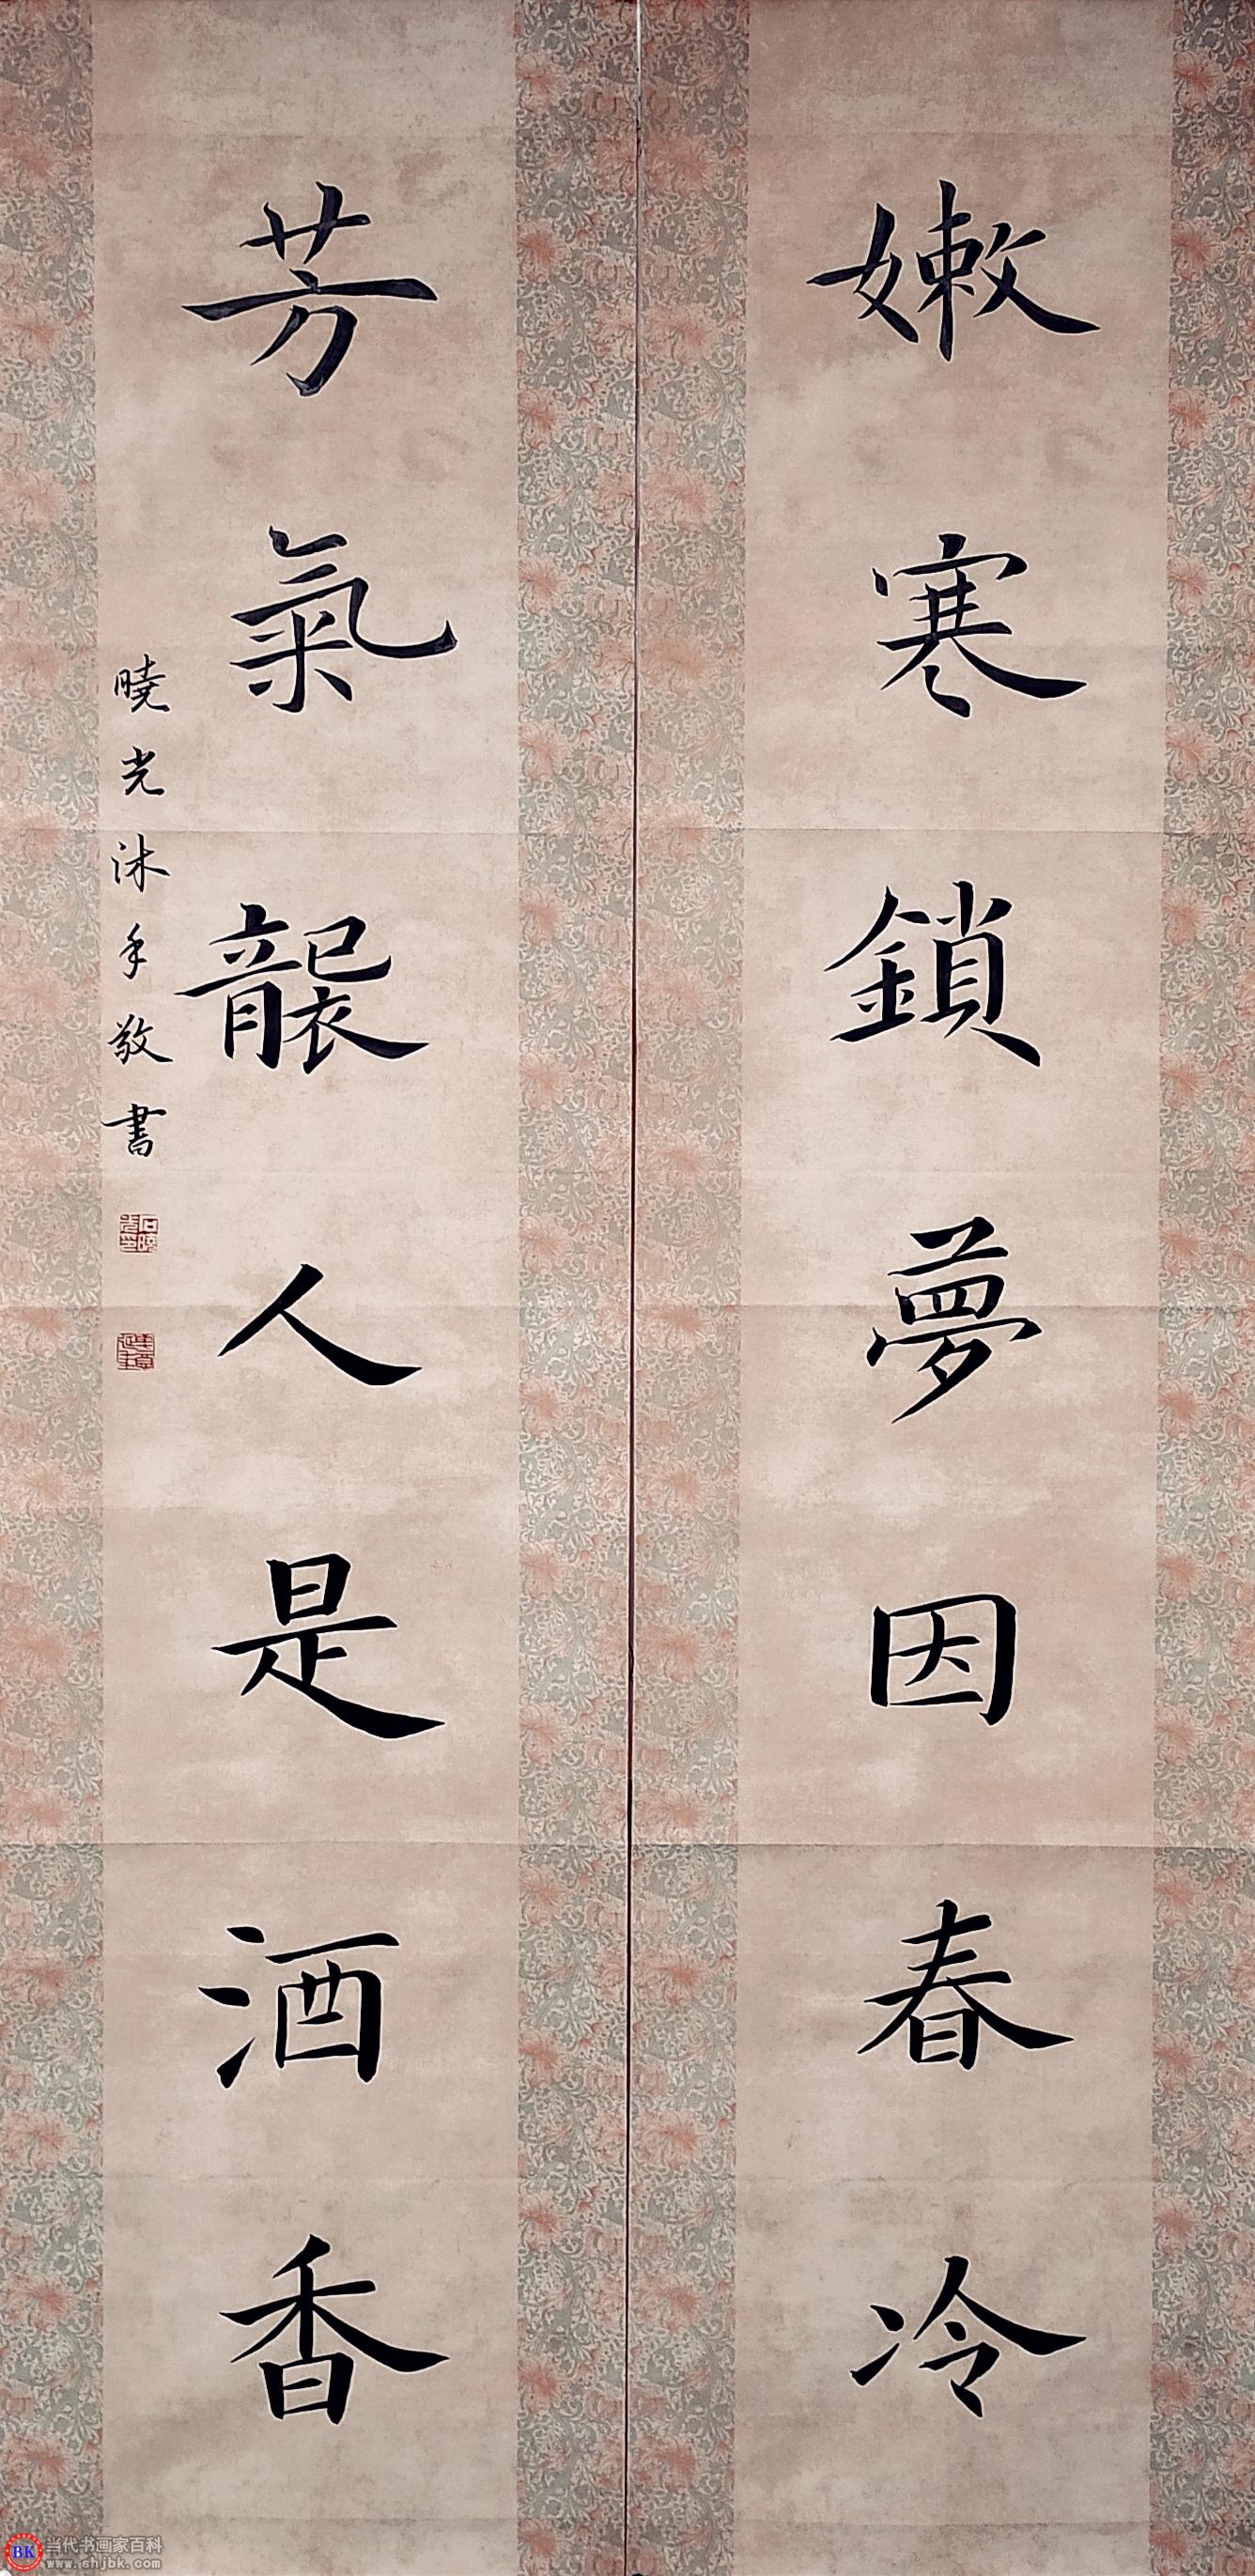 嫩寒鎖夢因春冷
芳氣襲人是酒香
曉光沐手敬書
BK 当代书画家百科
www.shjbk.com